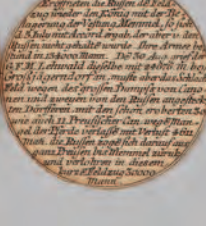 Eröfneten die Russen de Feld
zug wieder den König mit der Be
lagerung der Vestung Memmel, so sich
d. 5 July mit Accord ergab, der aber v. den
Russen nicht gehalten wurde. Ihre Armee be
stund in 134000 Mann. Den 30 Aug. grief der
F. M. Lehwald dieselbe mit 24000 in bey
Groß Jägerndorf an, muste aber das Schlacht
Feld wegen des großen Dampfs von Cano
nen und zweyen von den Russen angesteck
ten Dörfferen, mit den schon eroberten 3
wie auch 11 Preußischer Can. weg Man
gel der Pferde verlassen mit Verlust 4611
Man. die Russen zogen sich darauf aus
ganz Preußen bis Memmel zurück
und verlohren in diesem
kurze Feldzug 30000
Mann.